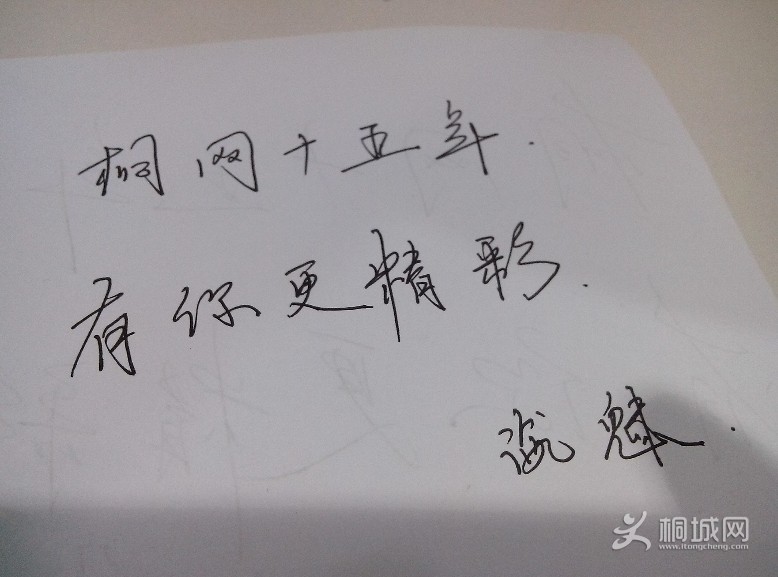 桐网十五年.
有你更精彩.
魅.
桐城网
www.itongcheng.com